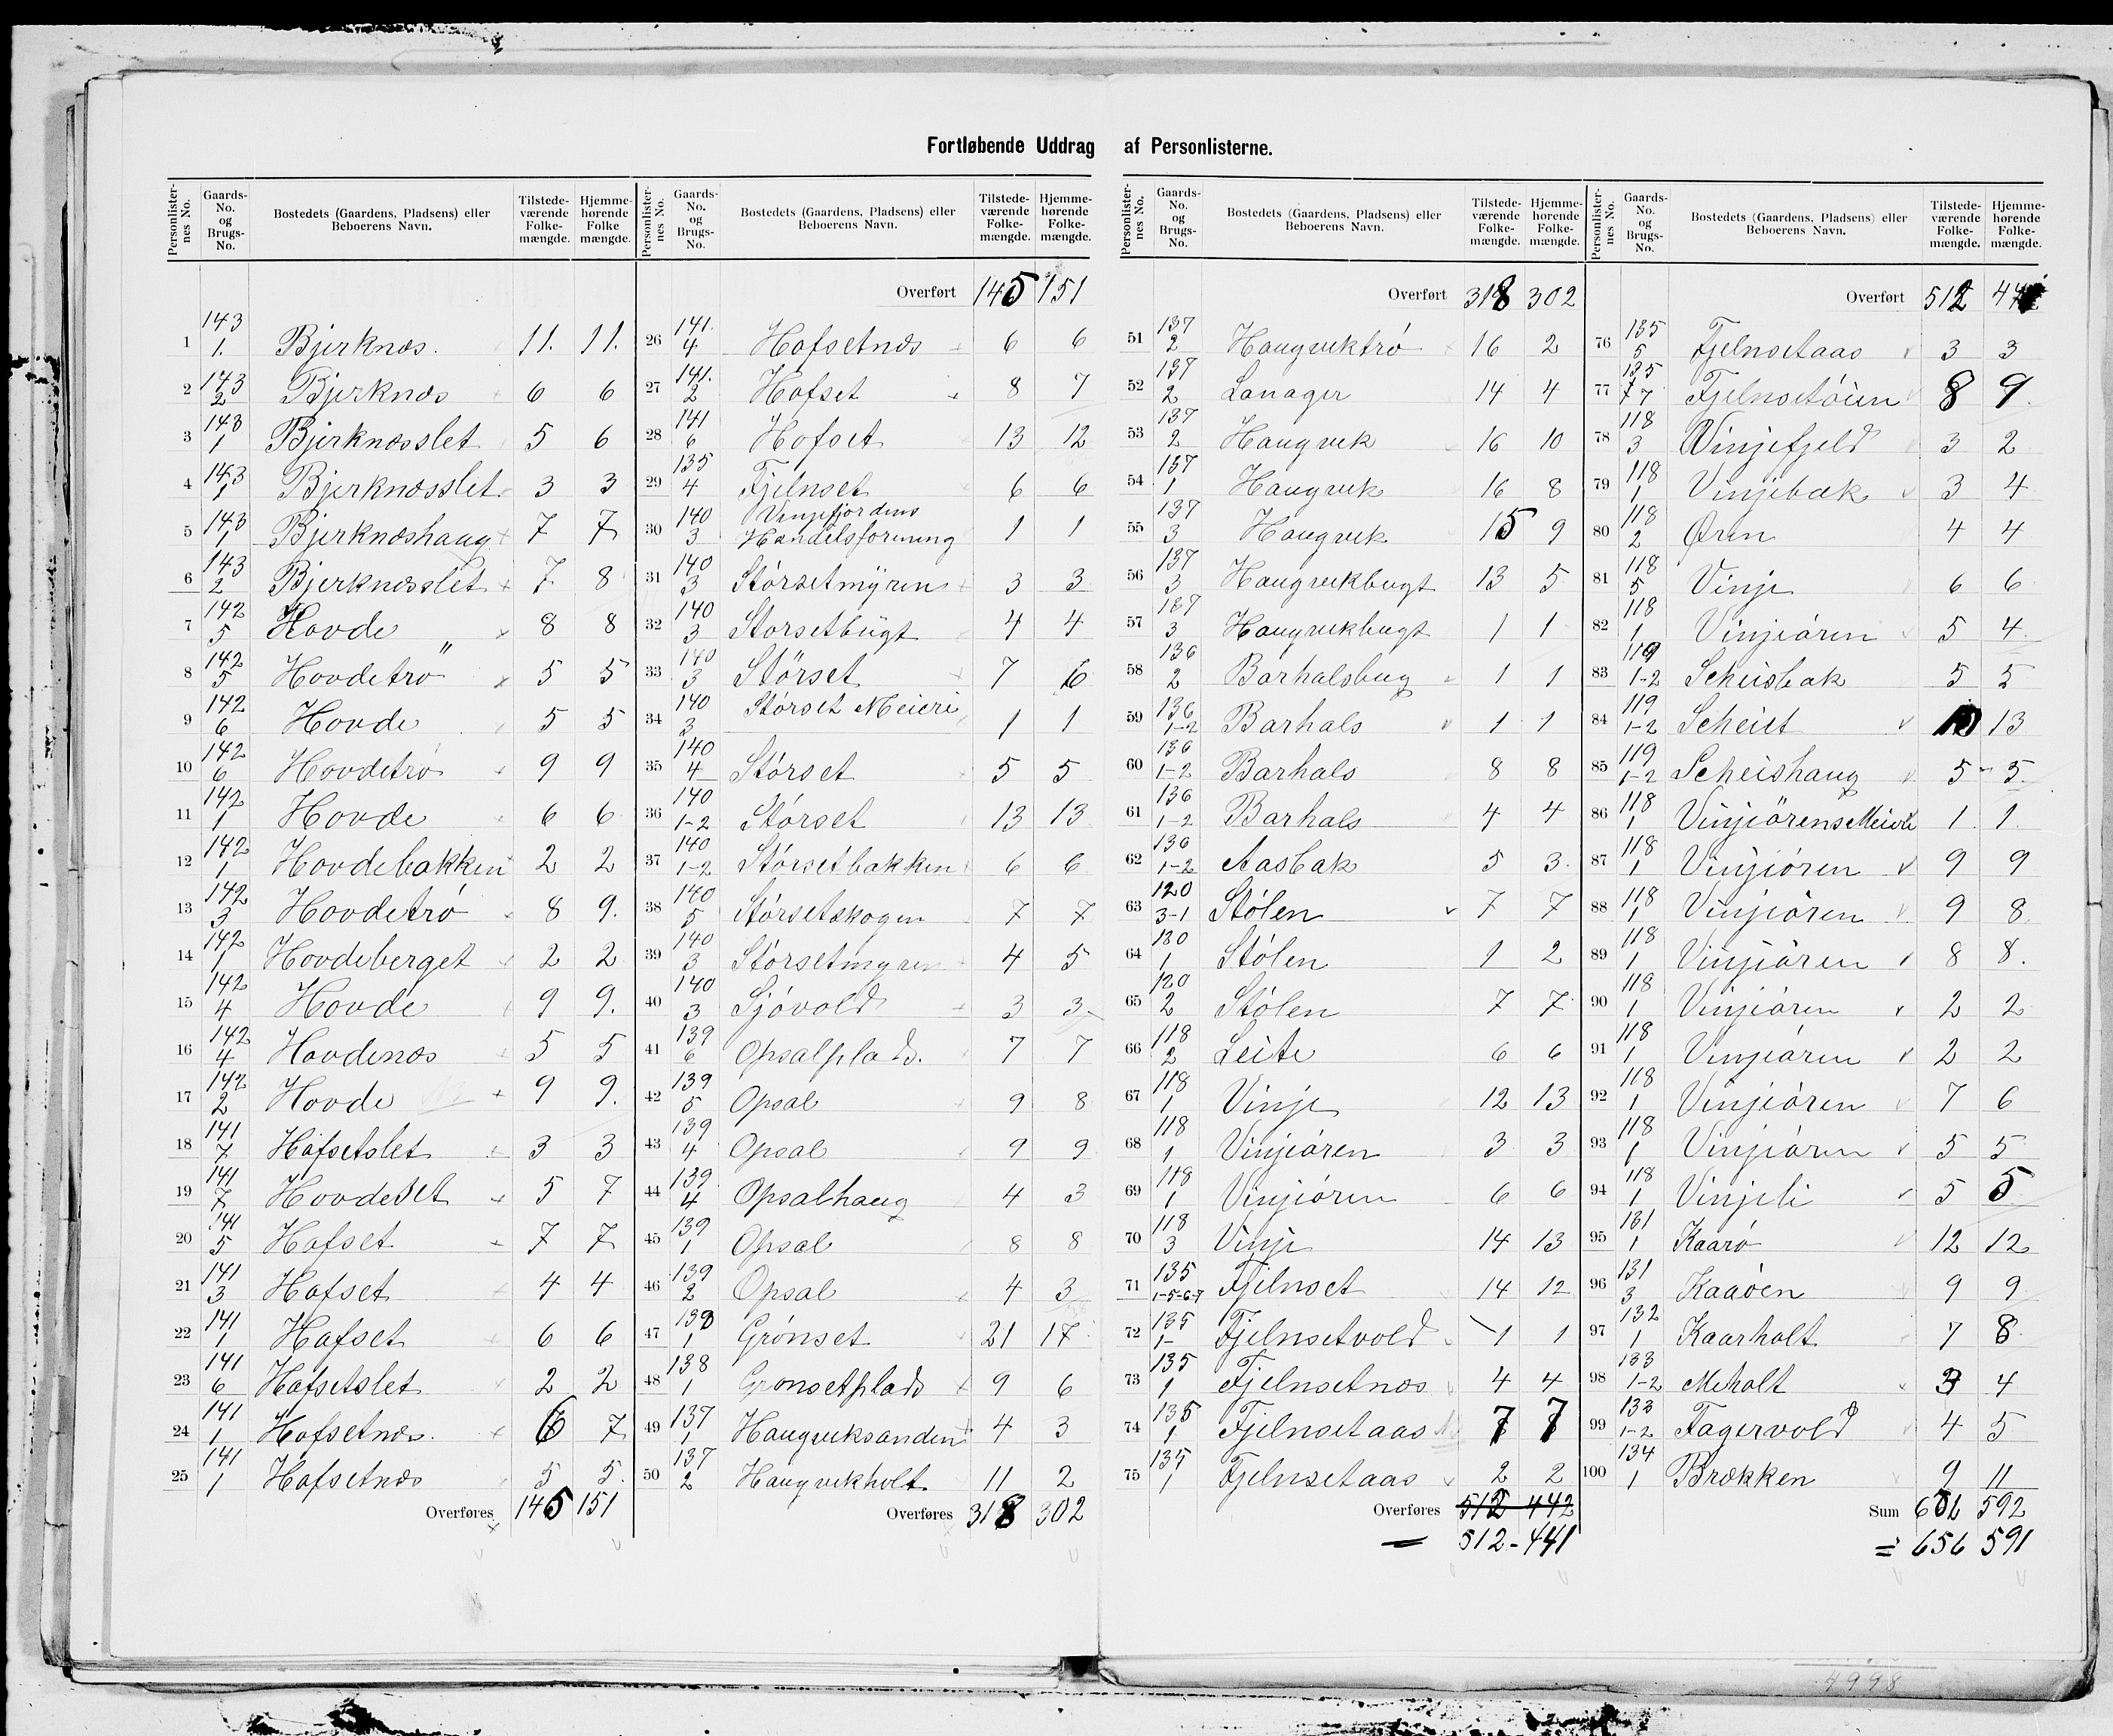 Fortløbende Uddrag af Personlisterne.
Personlisternes No. Gaards-No. og Brugs-No. Bostedets (Gaardens, Pladsens) eller Beboerens Navn. Tilstedeværende Folkemængde. Hjemmehørende Folkemængde.
1 143/1. Bjerknæs. 11. 11.
2 143/2 Bjerknæs 6 6
3 143/1 Bjerknæsslet 5 6
4 143/1 Bjerknæsslet 3 3
5 143/1 Bjerknæshaug 7 7
6 143/2 Bjerknæsslet 7 8
7 142/5 Hovde 8 8
8 142/5 Hovdetrø 5 5
9 142/6 Hovde 5 5
10 142/6 Hovdetrø 9 9
11 142/1 Hovde 6 6
12 142/1 Hovdebakken 2 2
13 142/3 Hovdetrø 8 9.
14 142/1 Hovdeberget 2 2
15 142/4 Hovde 9 9.
16 142/4 Hovdenæs 5 5
17 142/2 Hovde 9 9.
18 141/7 Hafsetslet 3 3
19 141/7 Hovdeset 5 7
20 141/5 Hafset 7 7
21 141/3 Hafset 4 4
22 141/1 Hafset 6 6
23 141/6 Hafsetslet 2 2
24 141/1 Hafsetnæs. 6 7
25 141/1 Hafsetnæs 5 5.
Overføres 145 151
Personlisternes No. Gaards-No. og Brugs-No. Bostedets (Gaardens, Pladsens) eller Beboerens Navn. Tilstedeværende Folkemængde. Hjemmehørende Folkemængde.
Overført 145 151
26 141./4 Hofsetnæs 6 6
27 141./2 Hofset 8 7
28 141/6 Hofset 13 12
29 135/4 Fjelnset 6 6
30 140/3 Vinjefjordens
Handelsforening 1 1
31 140/3 Størsetmyren 3 3
32 140/3 Størsetbugt 4 4
33 140/3 Størset 7 6
34 140/3 Størset Meieri 1 1
35 140/4 Størset 5 5
36 140/1-2 Størset 13 13
37 140/1-2 Størsetbakken 6 6
38 140/5 Størsetskogen 7 7
39 140/3 Størsetmyren 4 5
40 140/3 Sjøvold 3 3
41 139/6 Opsalplads. 7 7
42 139/5 Opsal 9 8
43 139/4 Opsal 9 9
44 139/4 Opsalhaug 4 3
45 139/1 Opsal 8 8
46 139/2 Opsal 4 3
47 138/1 Grønset 21 17
48 138/1 Grønsetplads 9 6
49 137/1 Haugviksanden 4 3
50 137/2 Haugvikholt 11 2
Overføres 318 302
Personlisternes No. Gaards-No. og Brugs-No. Bostedets (Gaardens, Pladsens) eller Beboerens Navn. Tilstedeværende Folkemængde. Hjemmehørende Folkemængde.
Overført 318 302
51 137/2 Haugviktrø 16 2
52 137/2 Lanager 14 4
53 137/2 Haugvik 16 10
54 137/1 Haugvik 16 8
55 137/3 Haugvik 15 9
56 137/3 Haugvikbugt 13 5
57 137/3 Haugvikbugt 1 1
58 136/2 Barhalsbug 1 1
59 136/1-2 Barhals 1 1
60 136/1-2 Barhals 8 8
61 136/1-2 Barhals 4 4
62 136/1-2 Aasbak 5 3
63 120/3-1 Stølen 7 7
64 120/1 Stølen 1 2
65 120/2 Stølen 7 7
66 118/2 Leite 6 6
67 118/1 Vinje 12 13
68 118/1 Vinjeøren 3 3
69 118/1 Vinjeøren 6 6
70 118/3 Vinje 14 13
71 135/1-5-6-7 Fjelnset 14 12
72 135/1- Fjelnsetvold 1 1
73 135/1 Fjelnsetnæs 4 4
74 135/1 Fjelnsetaas 7 7
75 135/1 Fjelnsetaas 2 2
Overføres 512 442
512-441
Personlisternes No. Gaards-No. og Brugs-No. Bostedets (Gaardens, Pladsens) eller Beboerens Navn. Tilstedeværende Folkemængde. Hjemmehørende Folkemængde.
Overført 512
76 135/5 Fjelnsetaas 3 3
77 135/7 Fjelnsetøien 8 9.
78 118/3 Vinjefjeld 3 2
79 118/1 Vinjebak 3 4
80 118/2 Øren 4 4
81 118/5 Vinje 6 6
82 118/1 Vinjeøren 5 4
83 119/1-2 Scheisbak 5 5
84 119/1-2 Scheiet 10 13
85 119/1-2 Scheishaug 5 5.
86 118/1 Vinjeørens Meieri 1 1
87 118/1 Vinjeøren 9 9
88 118/1 Vinjeøren 9 8
89 118/1 Vinjeøren 8 8.
90 118/1 Vinjeøren 2 2
91 118/1 Vinjeøren 2 2
92 118/1 Vinjeøren 7 6
93 118/1 Vinjeøren 5 5
94 118/1 Vinjeli 5 5
95 131/1 Kaarø 12 12
96 131/3 Kaaøen 9 9
97 132/1 Kaarholt 7 8
98 133/1-2 Meholt 3 4
99 133/1-2 Fagervold 4 5
100 134/1 Brækken 9 11
Sum 592
= 656 591
4998